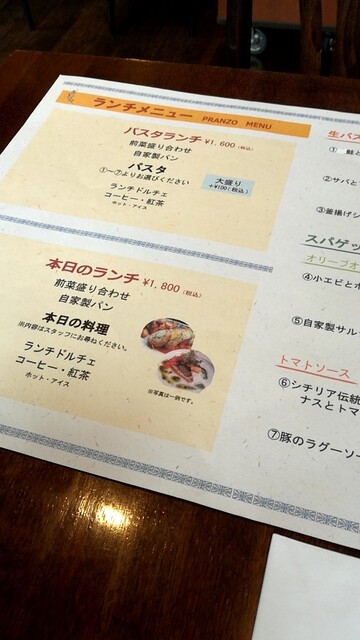 ランチメニュー PRANZO MENU
パスタランチ ¥1,600（税込）
前菜盛り合わせ
自家製パン
パスタ
①～⑦よりお選びください
大盛り
＋¥100（税込）
ランチドルチェ
コーヒー・紅茶
ホット・アイス
本日のランチ ¥1,800（税込）
前菜盛り合わせ
自家製パン
本日の料理
※内容はスタッフにお尋ねください。
ランチドルチェ
コーヒー・紅茶
ホット・アイス
※写真は一例です。
生パス
①
②サバと
③釜揚げシ
スパゲッ
オリーブオ
④小エビとホ
⑤自家製サル
トマトソース
⑥シチリア伝統
ナスとトマ
⑦豚のラグーソー